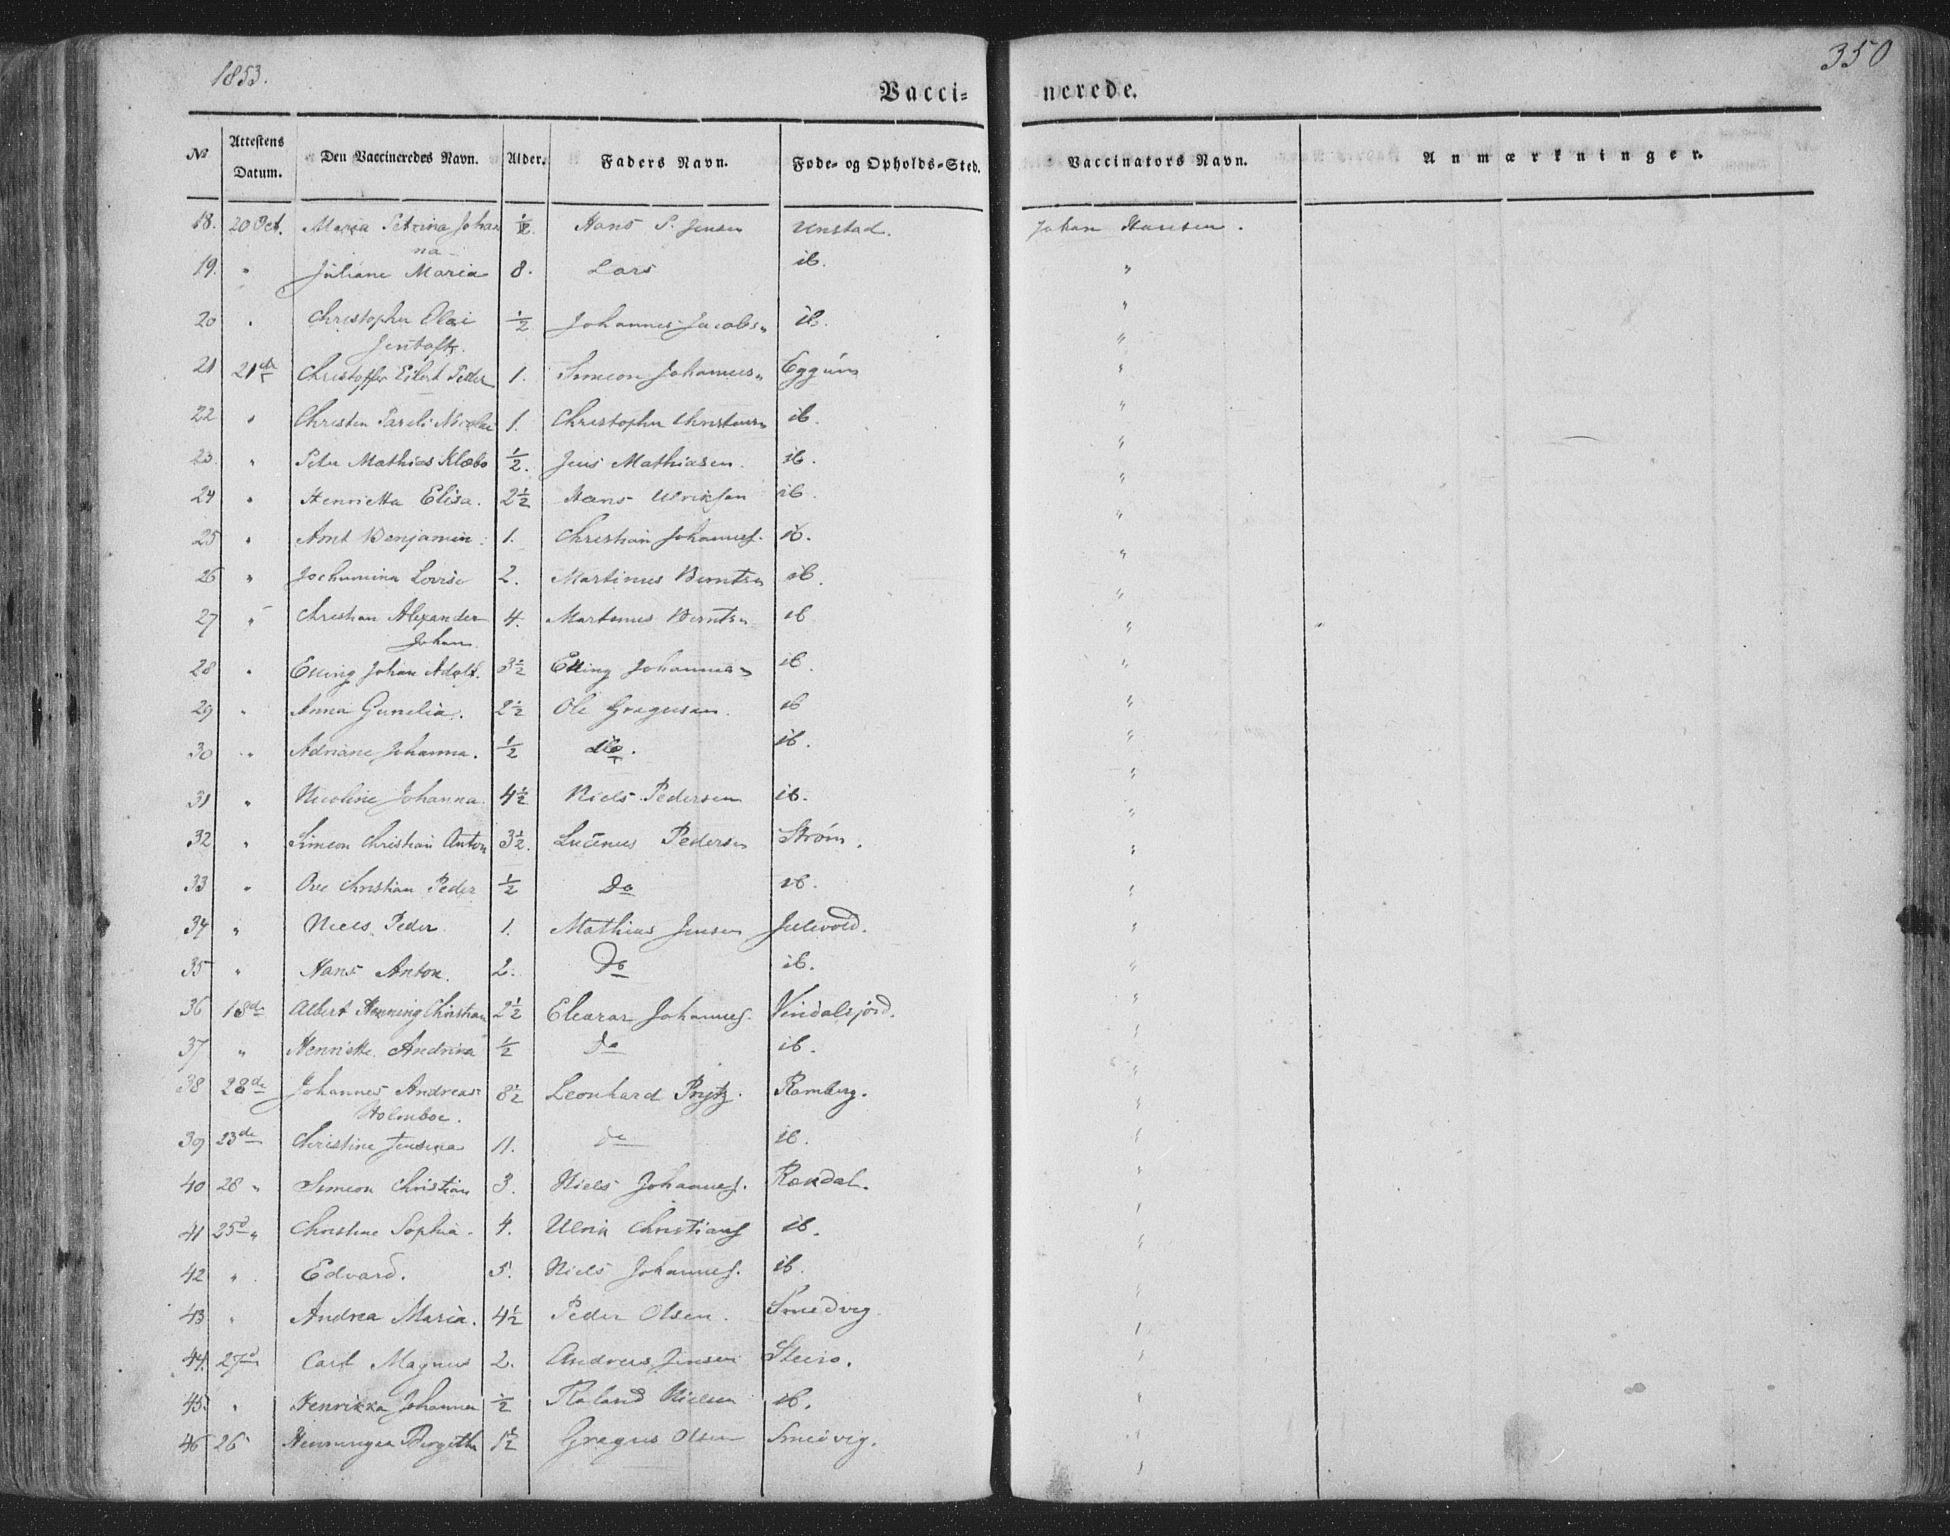 1853.
350
Vacci- nerede.
No Attestens Datum. Den Vaccineredes Navn. Alder. Faders Navn. Føde- og Opholds-Sted. Vaccinators Navn. Anmærkninger.
18. 20 Oct. Maria Petrina Johan 1/2. Hans P. Jensen Unstad. Johan Hansen.
na
19. " Juliane Maria 8. Lars ib. "
20 " Christopher Olai 1/2 Johannes Jacobsn ib. "
Jentoft.
21 21de Christoffer Eilert Peder 1. Simeon Johannesn Eggum "
22 " Christen Pareli Nicolai 1. Christopher Christensn ib. "
23. " Peter Mathias Klæbo 1/2. Jens Mathiasen. ib. "
24 " Henrietta Elisa. 2 1/2 Hans Ulriksen ib. "
25 " Arnt Benjamin. 1. Christian Johannes. ib. "
26 " Jochumina Lovise 2. Martinus Berntsn ib. "
27 " Christian Alexander 4. Martinus Berntsn ib "
Johan
28 " Elling Johan Adolf. 3 1/2 Elling Johannesn ib. "
29 " Anna Gunelia. 2 1/2 Ole Gregusen. ib "
30 " Adriane Johanna. 1/2 do. ib. "
31 " Nicoline Johanna. 4 1/2 Niels Pedersen ib. "
32 " Simeon Christian Anton 3 1/2. Lucinus Pedersn Strøm. "
33 " Ove Christian Peder 1/2 Do ib. "
34 " Niels Peder 1. Mathias Jensen Julevold. "
35 " Hans Anton. 2. Do ib. "
36 18de Albert Henning Christian 2 1/2 Elearar Johannes. Vindalsjord. "
37 " Henriette Andrina 1/2 do ib. "
38 28de Johannes Andreas 8 1/2 Leonhard Prytz. Ramberg. "
Holmboe.
39 23de Christine Jensina 11. do ib. "
40 28 " Simeon Christian 3. Niels Johannes. Rændal. "
41 25d " Christine Sophia. 4. Ulrik Christians ib. "
42 " Edvard. 5. Niels Johannes. ib. "
43 " Andrea Maria. 4 1/2 Peder Olsen. Smedvig "
44. 27d Carl Magnus 2. Andreas Jensen Steiro. "
45. " Henrikka Johanna 1/2 Roland Nielsen ib. "
46 26 " Henningea Bergitha 1 1/2 Gregus Olsen Smedvig. "